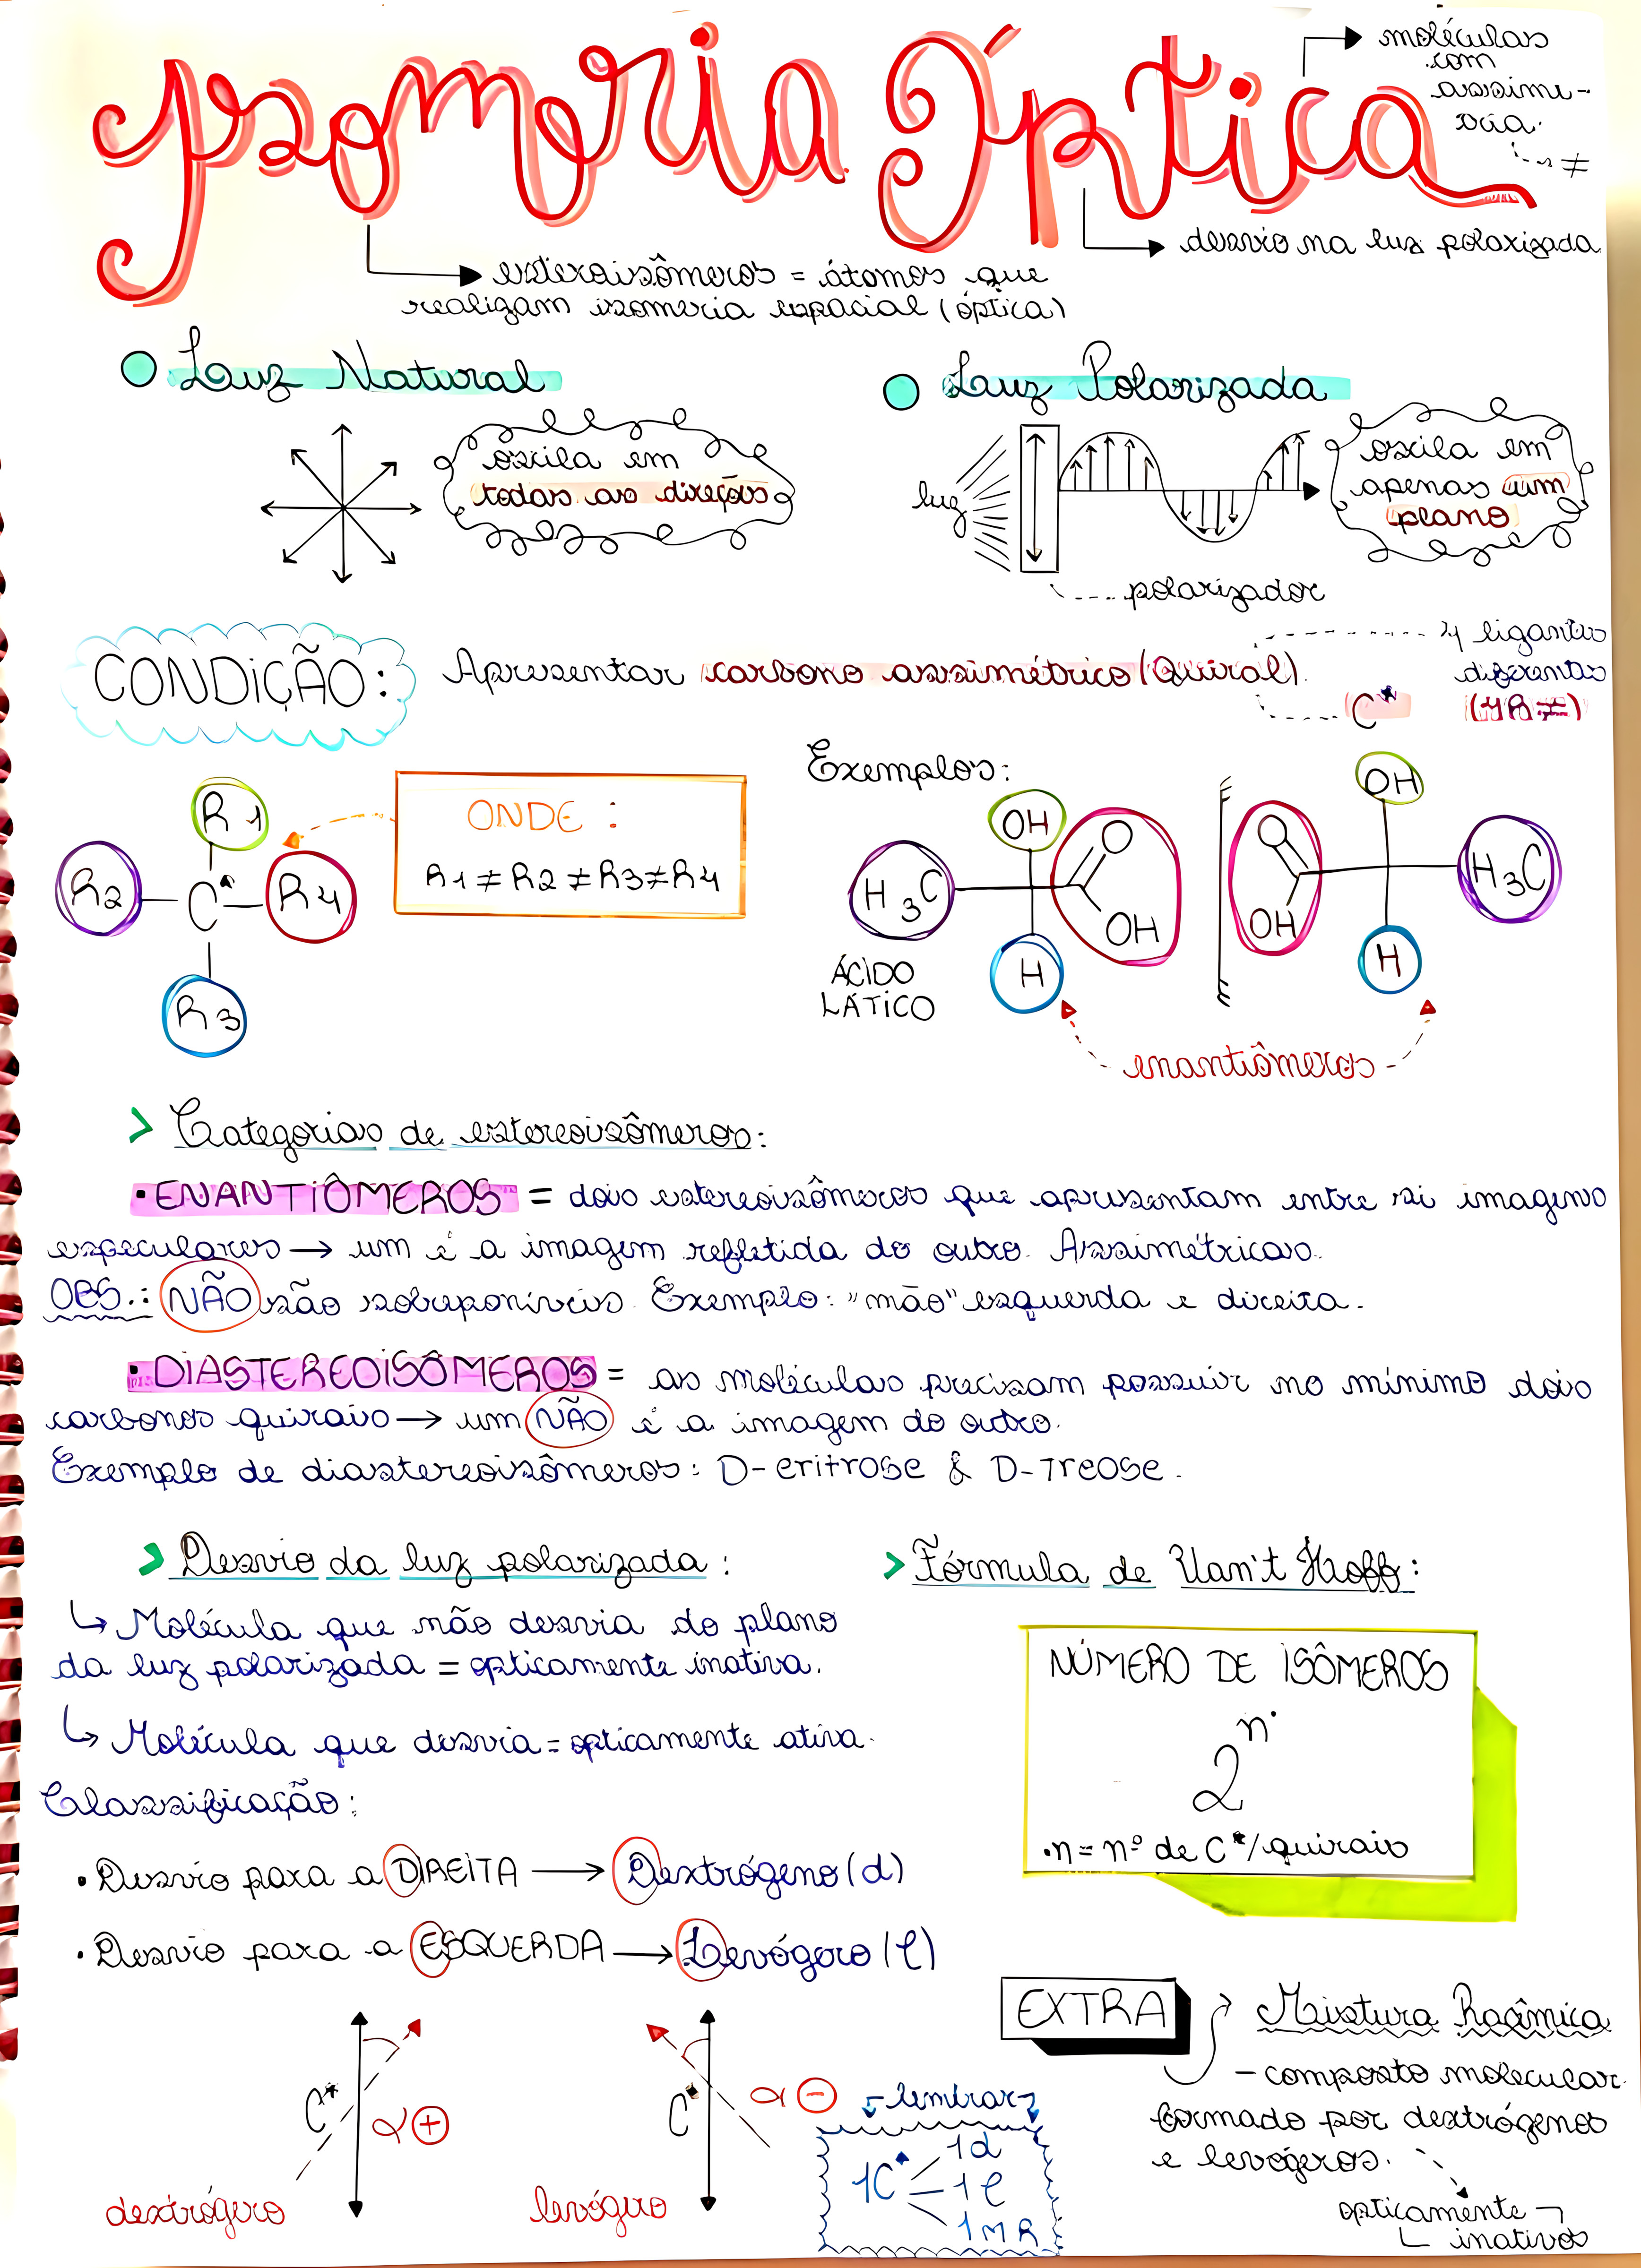 Isomeria Óptica
moléculas
com
assime-
tria.
≠
desvio na luz polarizada
estereoisômeros = átomos que
realizam isomeria espacial (óptica)
Luz Natural
oscila em
todas as direções
Luz Polarizada
luz
oscila em
apenas um
plano
polarizador
CONDIÇÃO: Apresentar carbono assimétrico (Quiral).
4 ligantes
diferentes
(4R≠)
C*
R1
R2 C* R4
R3
ONDE:
R1 ≠ R2 ≠ R3 ≠ R4
Exemplos:
OH O
H3C
OH
H
OH
O
H3C
OH
H
ÁCIDO
LÁTICO
enantiômeros
> Categorias de estereoisômeros:
• ENANTIÔMEROS = dois estereoisômeros que apresentam entre si imagens
especulares → um é a imagem refletida do outro. Assimétricas.
OBS.: NÃO são sobreponíveis. Exemplo: "mão" esquerda e direita.
• DIASTEREOISÔMEROS = as moléculas precisam possuir no mínimo dois
carbonos quirais → um NÃO é a imagem do outro.
Exemplo de diastereoisômeros: D-eritrose & D-Treose.
> Desvio da luz polarizada:
↳ Molécula que não desvia do plano
da luz polarizada = opticamente inativa.
↳ Molécula que desvia = opticamente ativa.
Classificação:
• Desvio para a DIREITA → Dextrógeno (d)
• Desvio para a ESQUERDA → Levógero (l)
C* α +
dextrógero
C* α -
levógero
> Fórmula de Van't Hoff:
NÚMERO DE ISÔMEROS
2^n
• n = nº de C*/quirais
lembrar
1C* 1d
1l
1MR
EXTRA
Mistura Racêmica
- composto molecular
formado por dextrógenos
e levógeros.
opticamente
inativos